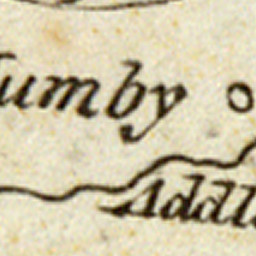 umby
Addl